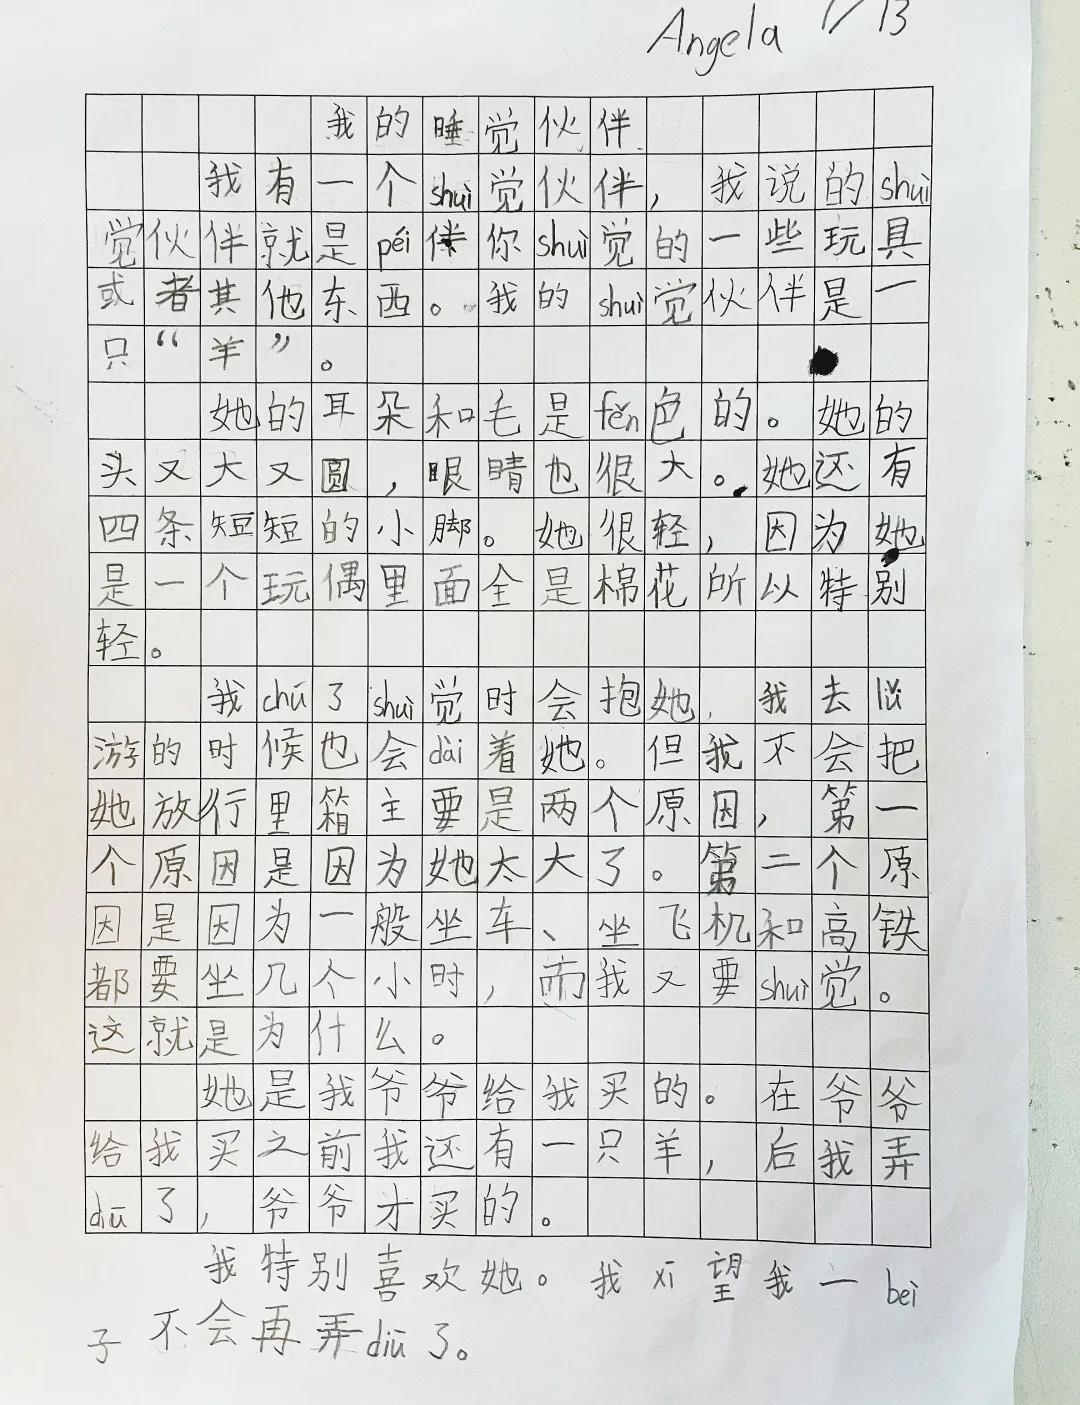 Angela 1/13
我的睡觉伙伴
我有一个shuì觉伙伴，我说的shuì
觉伙伴就是péi伴你shuì觉的一些玩具
或者其他东西。我的shuì觉伙伴是一
只“羊”。
她的耳朵和毛是fěn色的。她的
头又大又圆，眼睛也很大。她还有
四条短短的小脚。她很轻，因为她
是一个玩偶里面全是棉花所以特别
轻。
我chú了shuì觉时会抱她，我去lǚ
游的时候也会dài着她。但我不会把
她放行里箱主要是两个原因，第一
个原因是因为她太大了。第二个原
因是因为一般坐车、坐飞机和高铁
都要坐几个小时，而我又要shuì觉。
这就是为什么。
她是我爷爷给我买的。在爷爷
给我买之前我还有一只羊，后我弄
diū了，爷爷才买的。
我特别喜欢她。我xī望我一bèi
子不会再弄diū了。